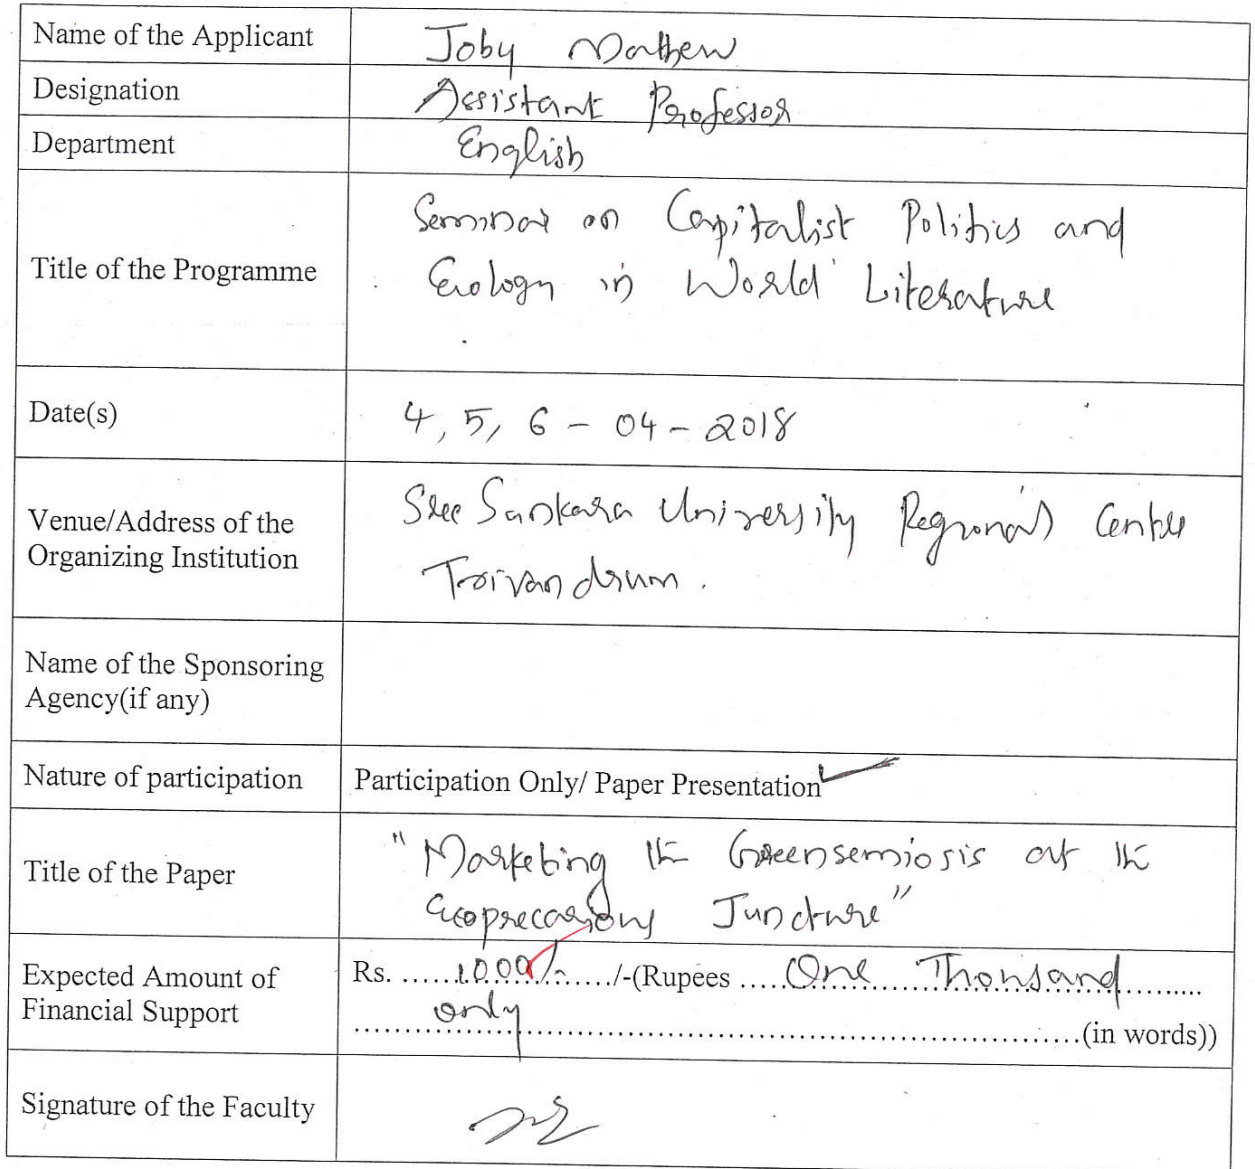 Name of the Applicant
Joby Mathew
Designation
Assistant Professor
Department
English
Title of the Programme
Seminar on Capitalist Politics and
Ecology in World Literature
Date(s)
4, 5, 6 - 04 - 2018
Venue/Address of the
Organizing Institution
Sree Sankara University Regional Centre
Trivandrum.
Name of the Sponsoring
Agency(if any)
Nature of participation
Participation Only/ Paper Presentation
Title of the Paper
"Marketing the Greensemiosis at the
Ecoprecarious Juncture"
Expected Amount of
Financial Support
Rs. ......1000/-....../-(Rupees .....One Thousand.......
only
..........................................................................(in words))
Signature of the Faculty